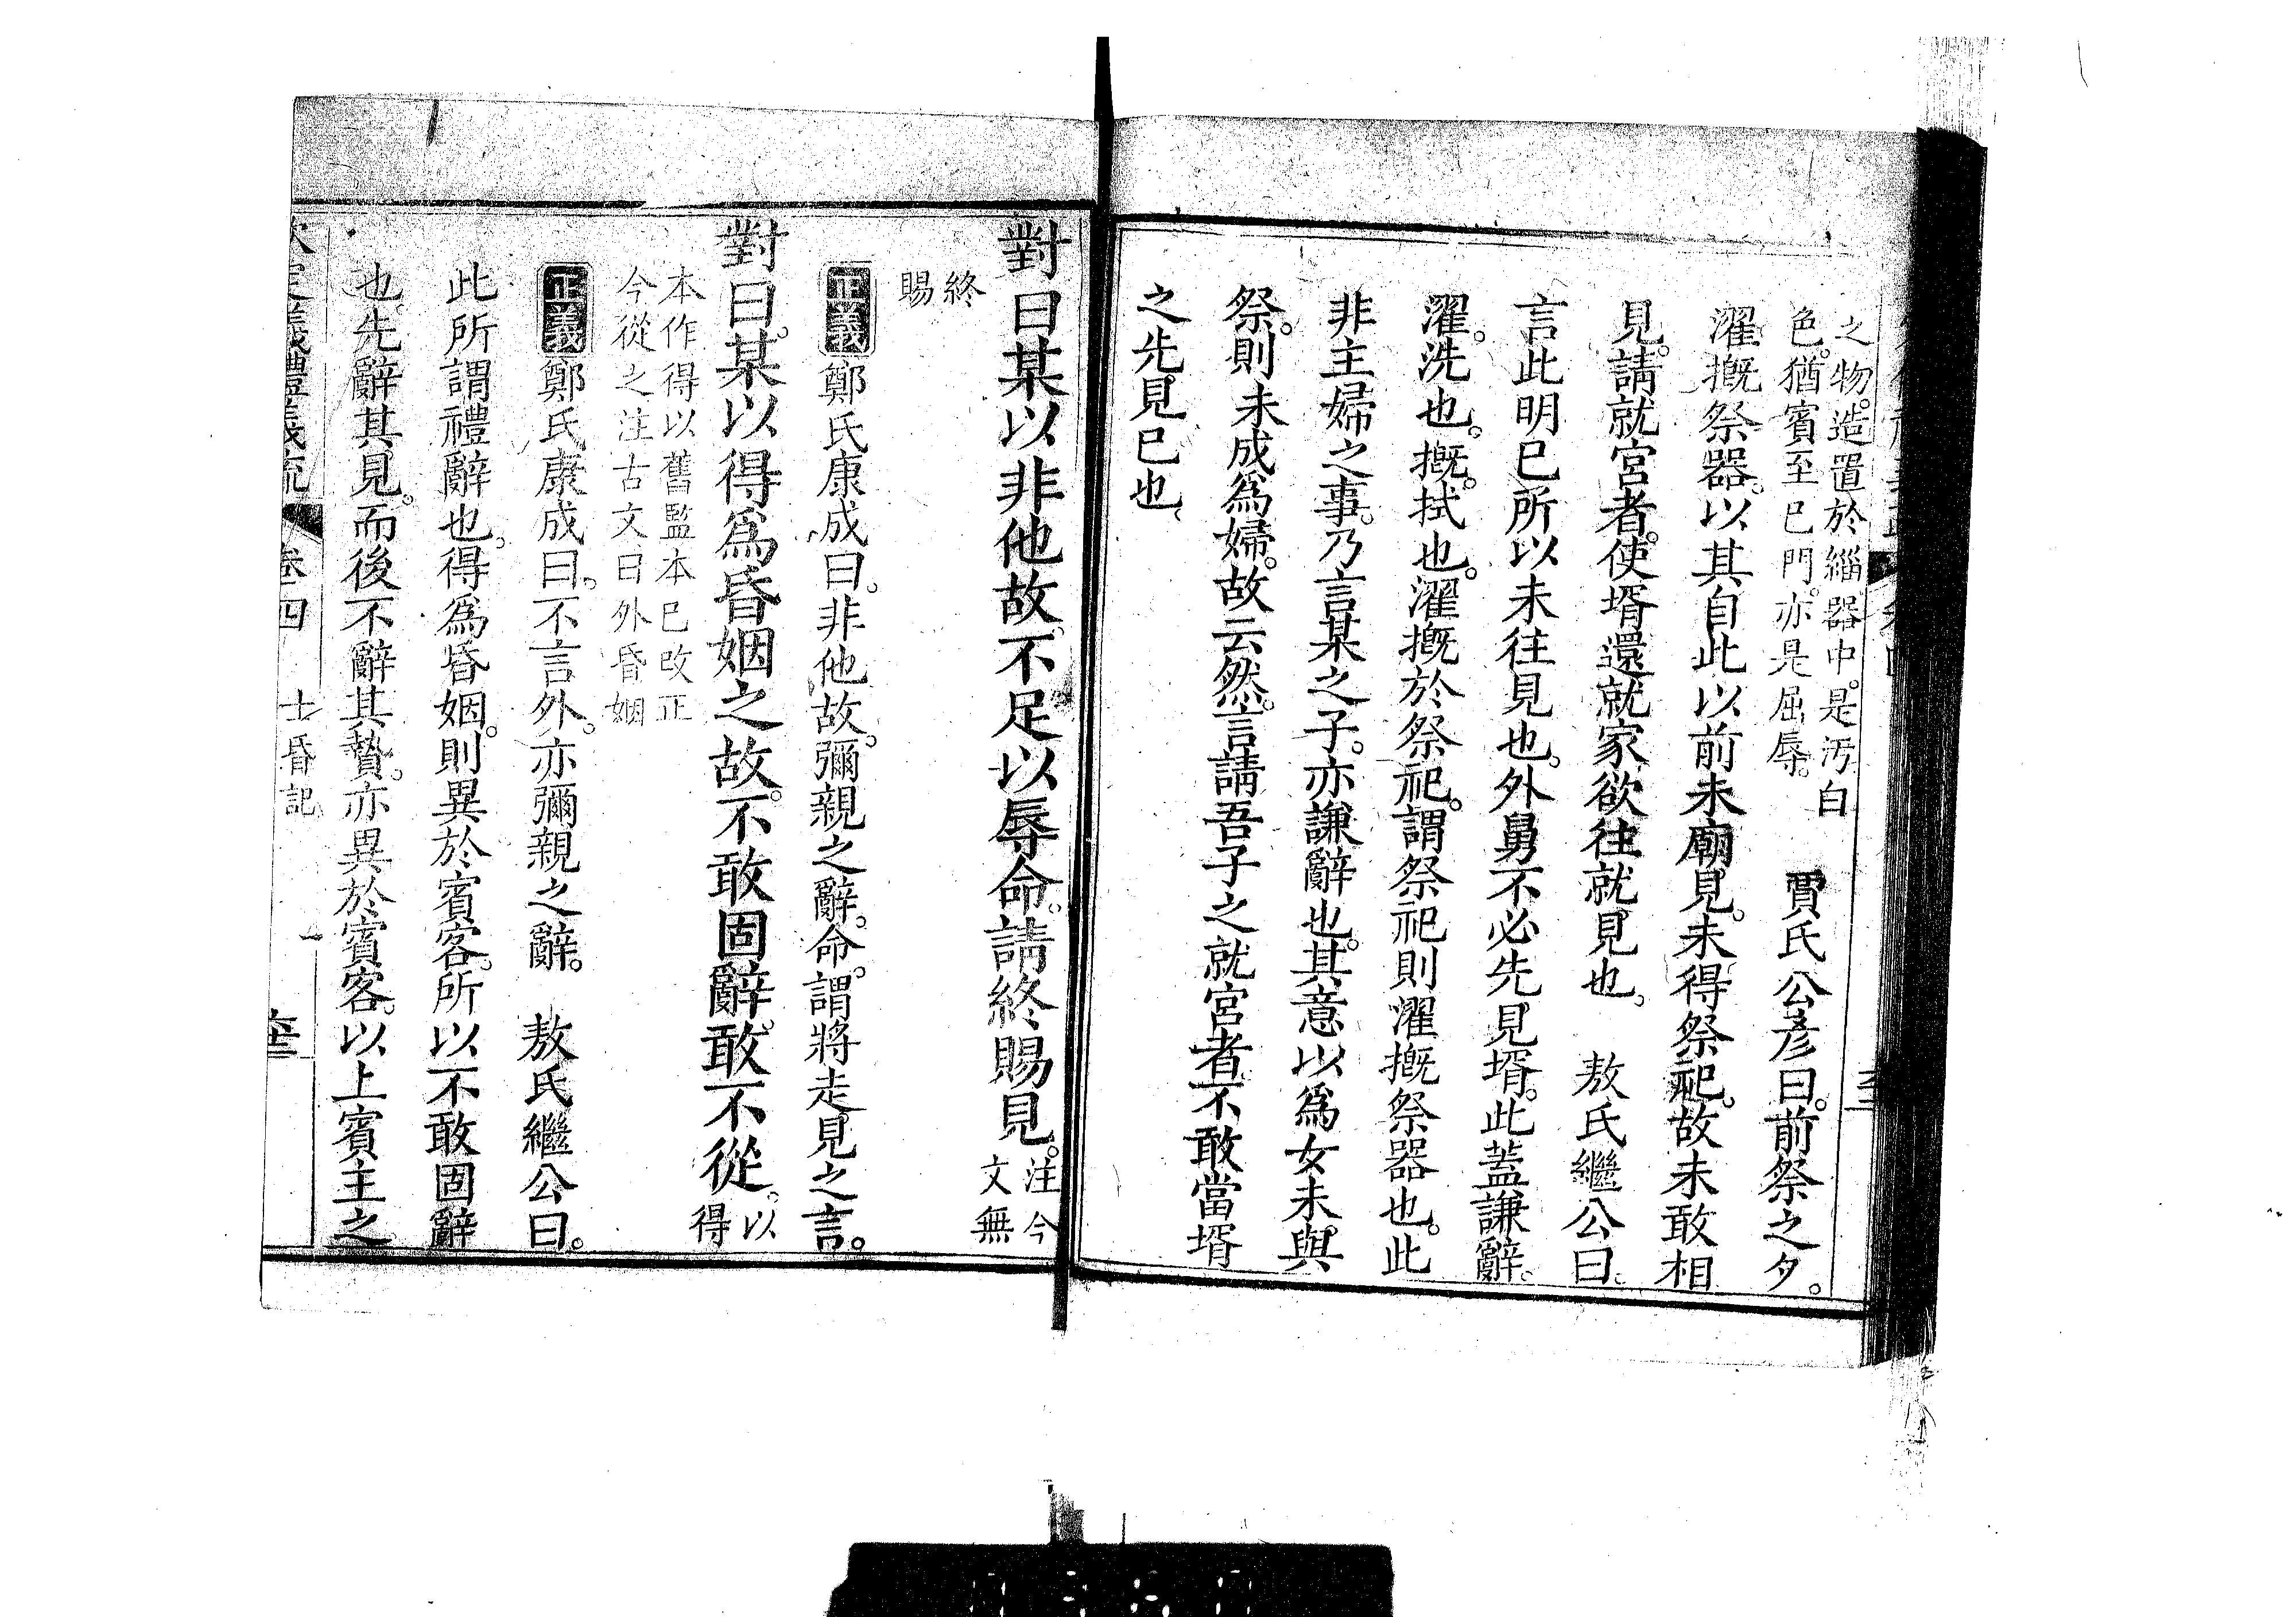 之物。造置於緇器中。是汚白
色。猶賓至已門。亦是屈辱。
賈氏公彥曰。前祭之夕。
濯摡祭器。以其自此以前未廟見。未得祭祀。故未敢相
見。請就宮者。使壻還就家欲往就見也。　敖氏繼公曰。
言此明已所以未往見也。外舅不必先見壻。此蓋謙辭。
濯。洗也。摡。拭也。濯摡於祭祀。謂祭祀則濯摡祭器也。此
非主婦之事。乃言某之子。亦謙辭也。其意以爲女未與
祭。則未成爲婦。故云然。言請吾子之就宮者。不敢當壻
之先見已也。
對曰某以非他故。不足以辱命。請終賜見。
注今
文無
終
賜
正義鄭氏康成曰。非他故。彌親之辭。命。謂將走見之言。
對曰。某以得爲昏姻之故。不敢固辭。敢不從。
以
得
本作得以舊監本已改正
今從之注古文曰外昏姻
正義鄭氏康成曰。不言外。亦彌親之辭。　敖氏繼公曰。
此所謂禮辭也。得爲昏姻。則異於賓客。所以不敢固辭
也。先辭其見。而後不辭其贄。亦異於賓客。以上賓主之
欽定儀禮義疏　卷四　士昏記